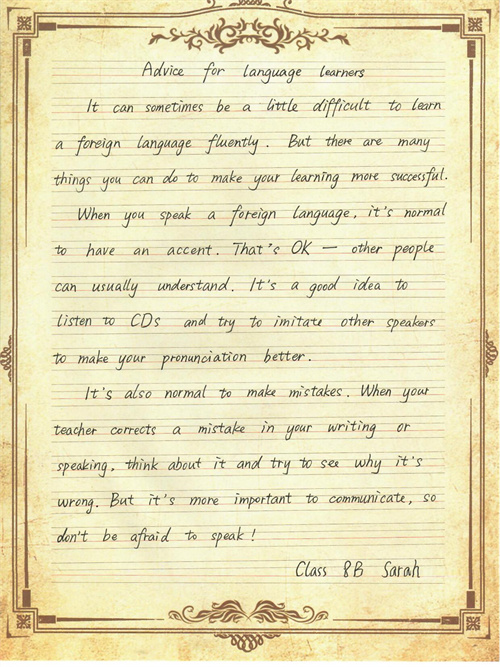 Advice for language learners
It can sometimes be a little difficult to learn
a foreign language fluently. But there are many
things you can do to make your learning more successful.
When you speak a foreign language, it's normal
to have an accent. That's OK — other people
can usually understand. It's a good idea to
listen to CDs and try to imitate other speakers
to make your pronunciation better.
It's also normal to make mistakes. When your
teacher corrects a mistake in your writing or
speaking, think about it and try to see why it's
wrong. But it's more important to communicate, so
don't be afraid to speak!
Class 8B Sarah